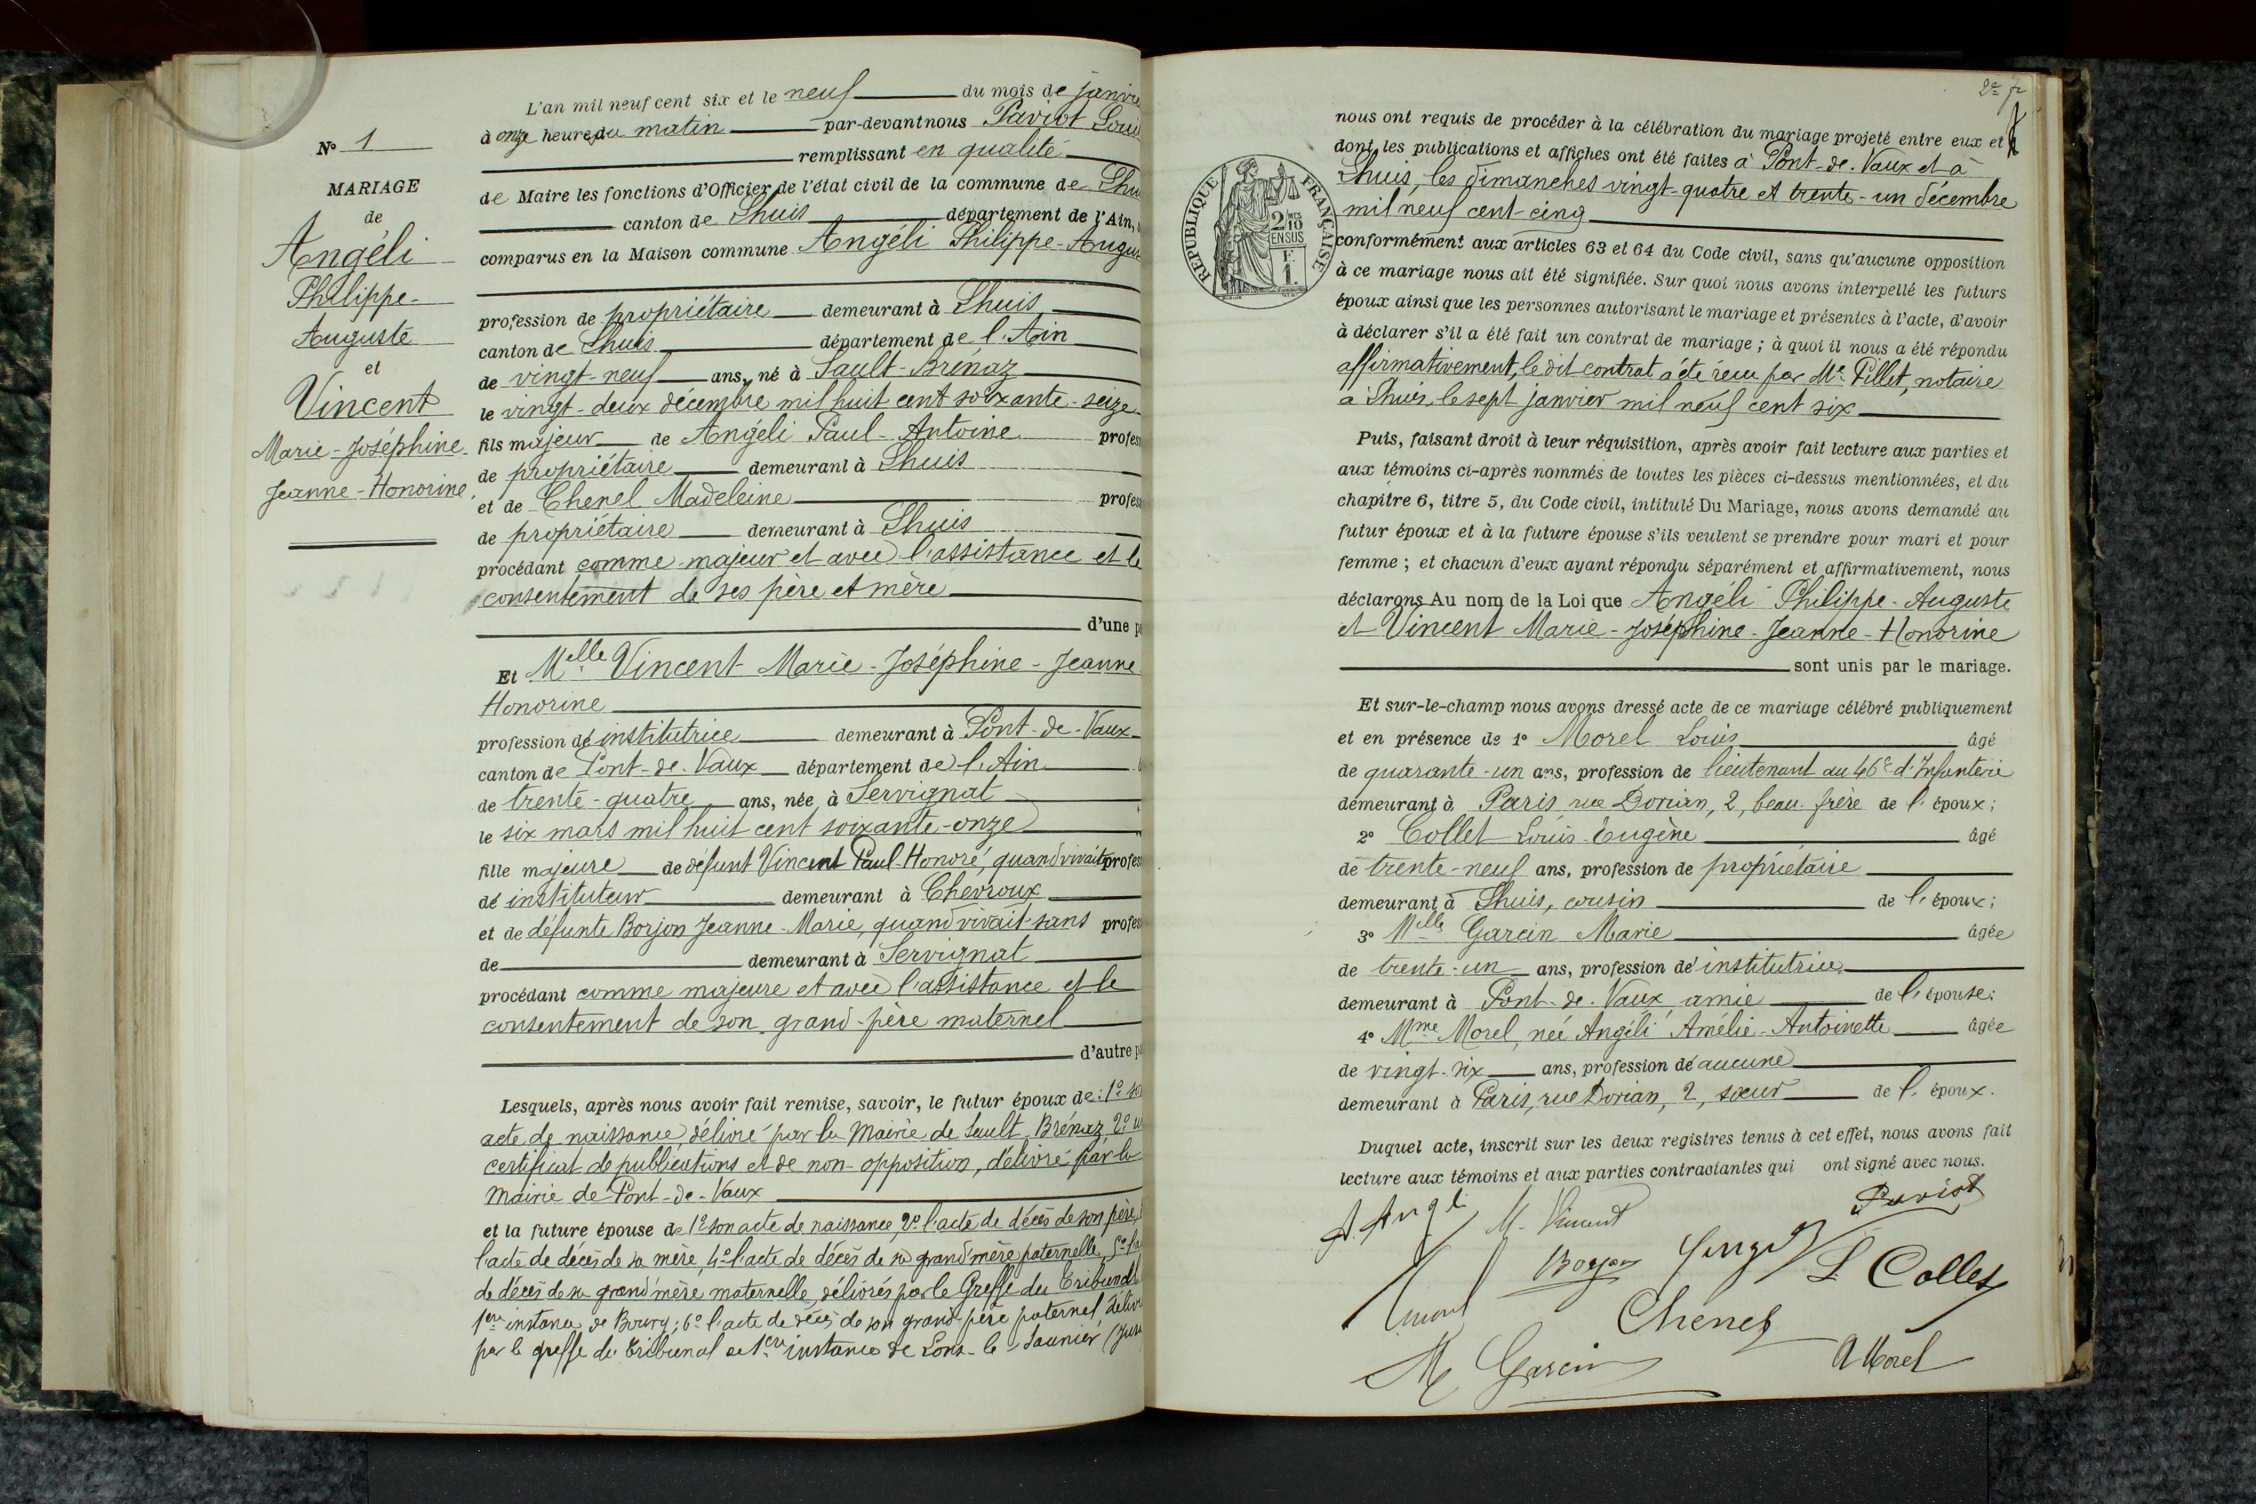 N° 1
MARIAGE
de
Angéli
Philippe-
Auguste
et
Vincent
Marie-Joséphine-
Jeanne-Honorine
L'an mil neuf cent six et le neuf du mois de janvie
à onze heures du matin par-devant nous Paviot Loui
remplissant en qualité
de Maire les fonctions d'Officier de l'état civil de la commune de Lhu
canton de Lhuis département de l'Ain,
comparus en la Maison commune Angéli Philippe-Augus
profession de propriétaire demeurant à Lhuis
canton de Lhuis département de l'Ain
de vingt-neuf ans, né à Sault-Brénaz
le vingt-deux décembre mil huit cent soixante-seize
fils majeur de Angéli Paul-Antoine profes
de propriétaire demeurant à Lhuis
et de Chenel Madeleine profes
de propriétaire demeurant à Lhuis
procédant comme majeur et avec l'assistance et le
consentement de ses père et mère
d'une p
Et Melle Vincent Marie-Joséphine-Jeanne
Honorine
profession de institutrice demeurant à Pont-de-Vaux
canton de Pont-de-Vaux département de l'Ain
de trente-quatre ans, née à Servignat
le six mars mil huit cent soixante-onze
fille majeure de défunt Vincent Paul-Honoré, quand vivait profes
de instituteur demeurant à Chevroux
et de défunte Borjon Jeanne-Marie, quand vivait sans profes
de demeurant à Servignat
procédant comme majeure et avec l'assistance et le
consentement de son grand-père maternel
d'autre p
Lesquels, après nous avoir fait remise, savoir, le futur époux de : 1° son
acte de naissance délivré par la Mairie de Sault-Brénaz, 2° u
certificat de publications et de non-opposition, délivré par la
Mairie de Pont-de-Vaux
et la future épouse de 1° son acte de naissance, 2° l'acte de décès de son père,
l'acte de décès de sa mère, 4° l'acte de décès de sa grand'mère paternelle, 5° l'a
de décès de sa grand'mère maternelle, délivrés par le Greffe du Tribunal
1ère instance de Bourg ; 6° l'acte de décès de son grand-père paternel délivr
par le greffe du Tribunal de 1ère instance de Lons-le-Saunier (Jura
2e f
nous ont requis de procéder à la célébration du mariage projeté entre eux et
dont les publications et affiches ont été faites à Pont-de-Vaux et à
Lhuis, les dimanches vingt-quatre et trente-un décembre
mil neuf cent-cinq
RÉPUBLIQUE FRANÇAISE
2/10
EN SUS
F.
1.
conformément aux articles 63 et 64 du Code civil, sans qu'aucune opposition
à ce mariage nous ait été signifiée. Sur quoi nous avons interpellé les futurs
époux ainsi que les personnes autorisant le mariage et présentes à l'acte, d'avoir
à déclarer s'il a été fait un contrat de mariage ; à quoi il nous a été répondu
affirmativement, le dit contrat a été reçu par Me Pillet, notaire
à Lhuis, le sept janvier mil neuf cent six
Puis, faisant droit à leur réquisition, après avoir fait lecture aux parties et
aux témoins ci-après nommés de toutes les pièces ci-dessus mentionnées, et du
chapitre 6, titre 5, du Code civil, intitulé Du Mariage, nous avons demandé au
futur époux et à la future épouse s'ils veulent se prendre pour mari et pour
femme ; et chacun d'eux ayant répondu séparément et affirmativement, nous
déclarons Au nom de la Loi que Angéli Philippe-Auguste
et Vincent Marie-Joséphine-Jeanne-Honorine
sont unis par le mariage.
Et sur-le-champ nous avons dressé acte de ce mariage célébré publiquement
et en présence de 1° Morel Louis âgé
de quarante-un ans, profession de lieutenant au 46e d'Infanterie
demeurant à Paris, rue Dorian, 2, beau-frère de l'époux ;
2° Collet Louis-Eugène âgé
de trente-neuf ans, profession de propriétaire
demeurant à Lhuis, cousin de l'époux ;
3° Melle Garcin Marie âgée
de trente-un ans, profession de institutrice
demeurant à Pont-de-Vaux, amie de l'épouse ;
4° Mme Morel, née Angéli Amélie-Antoinette âgée
de vingt-six ans, profession de aucune
demeurant à Paris, rue Dorian, 2, sœur de l'époux.
Duquel acte, inscrit sur les deux registres tenus à cet effet, nous avons fait
lecture aux témoins et aux parties contractantes qui ont signé avec nous.
A. Angeli M. Vincent Paviot
Borjon L. Collet
Chenel
M Garcin A Morel